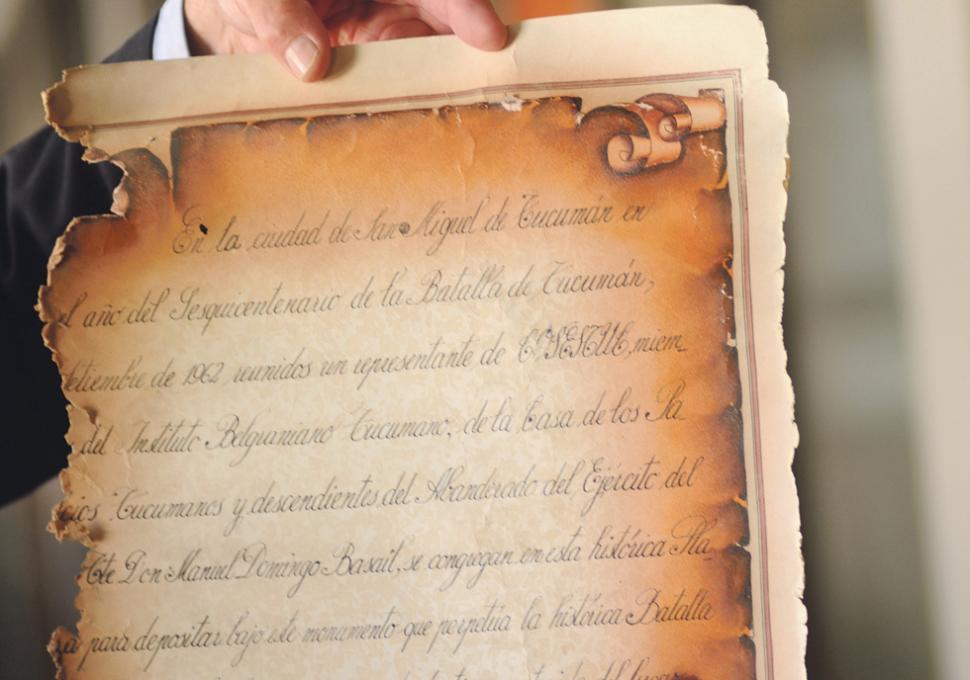 En la ciudad de San Miguel de Tucumán en
el año del Sesquicentenario de la Batalla de Tucumán,
setiembre de 1962, reunidos un representante de miem_
del Instituto Belgraniano Tucumano, de la Casa de los Pa_
cios Tucumanos y descendientes del Abanderado del Ejército del
Tte Don Manuel Domingo Basail, se congregan en esta histórica Pla_
za para depositar bajo este monumento que perpetúa la histórica Batalla
del lugar